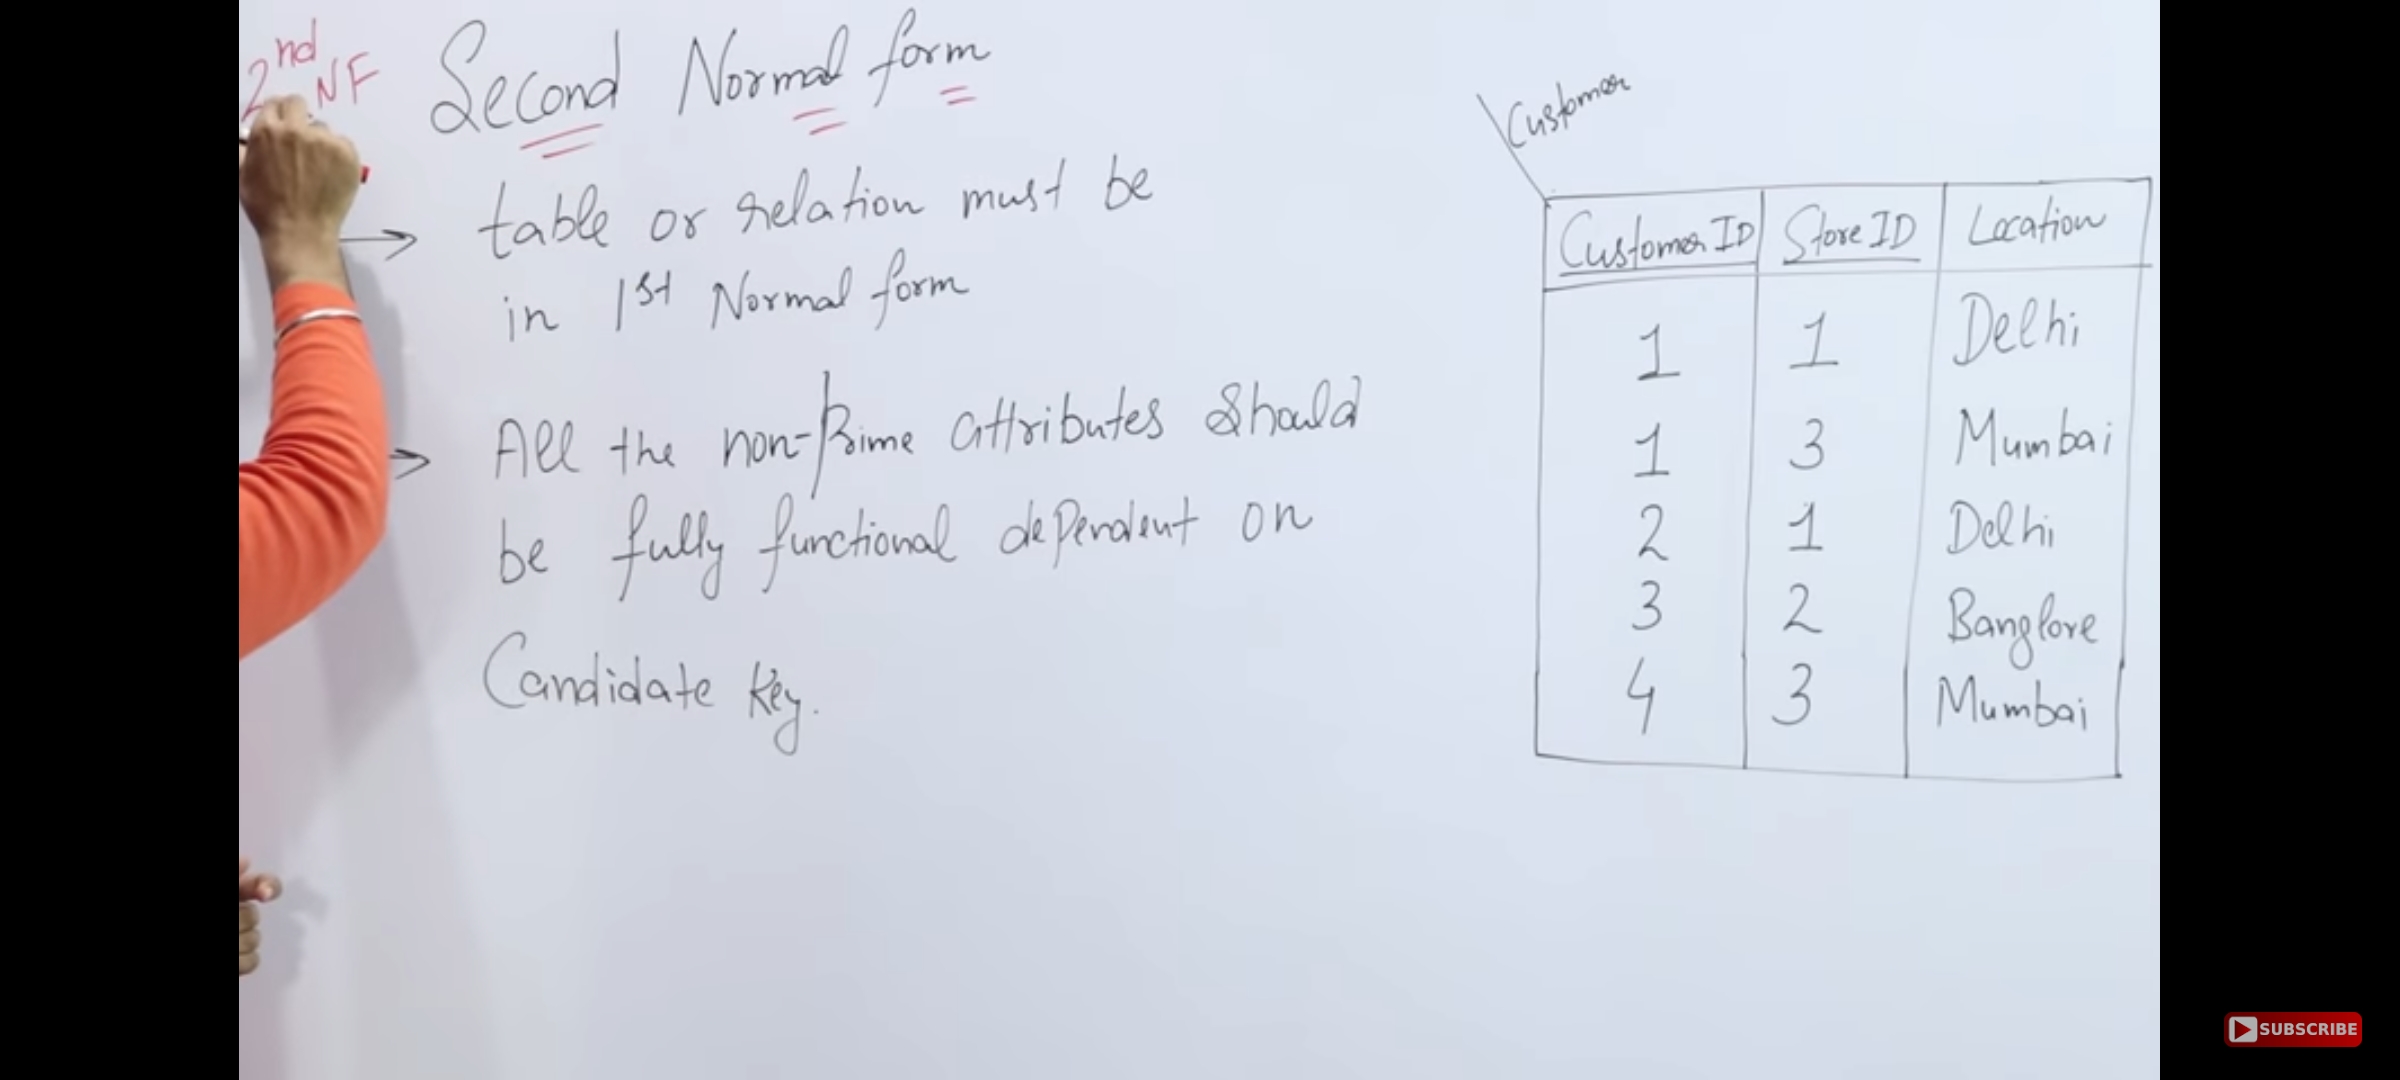 2nd NF
Second Normal form
table or relation must be
in 1st Normal form
All the non-Prime attributes should
be fully functional dependent on
Candidate Key.
Customer
Customer ID Store ID Location
1 1 Delhi
1 3 Mumbai
2 1 Delhi
3 2 Banglore
4 3 Mumbai
SUBSCRIBE